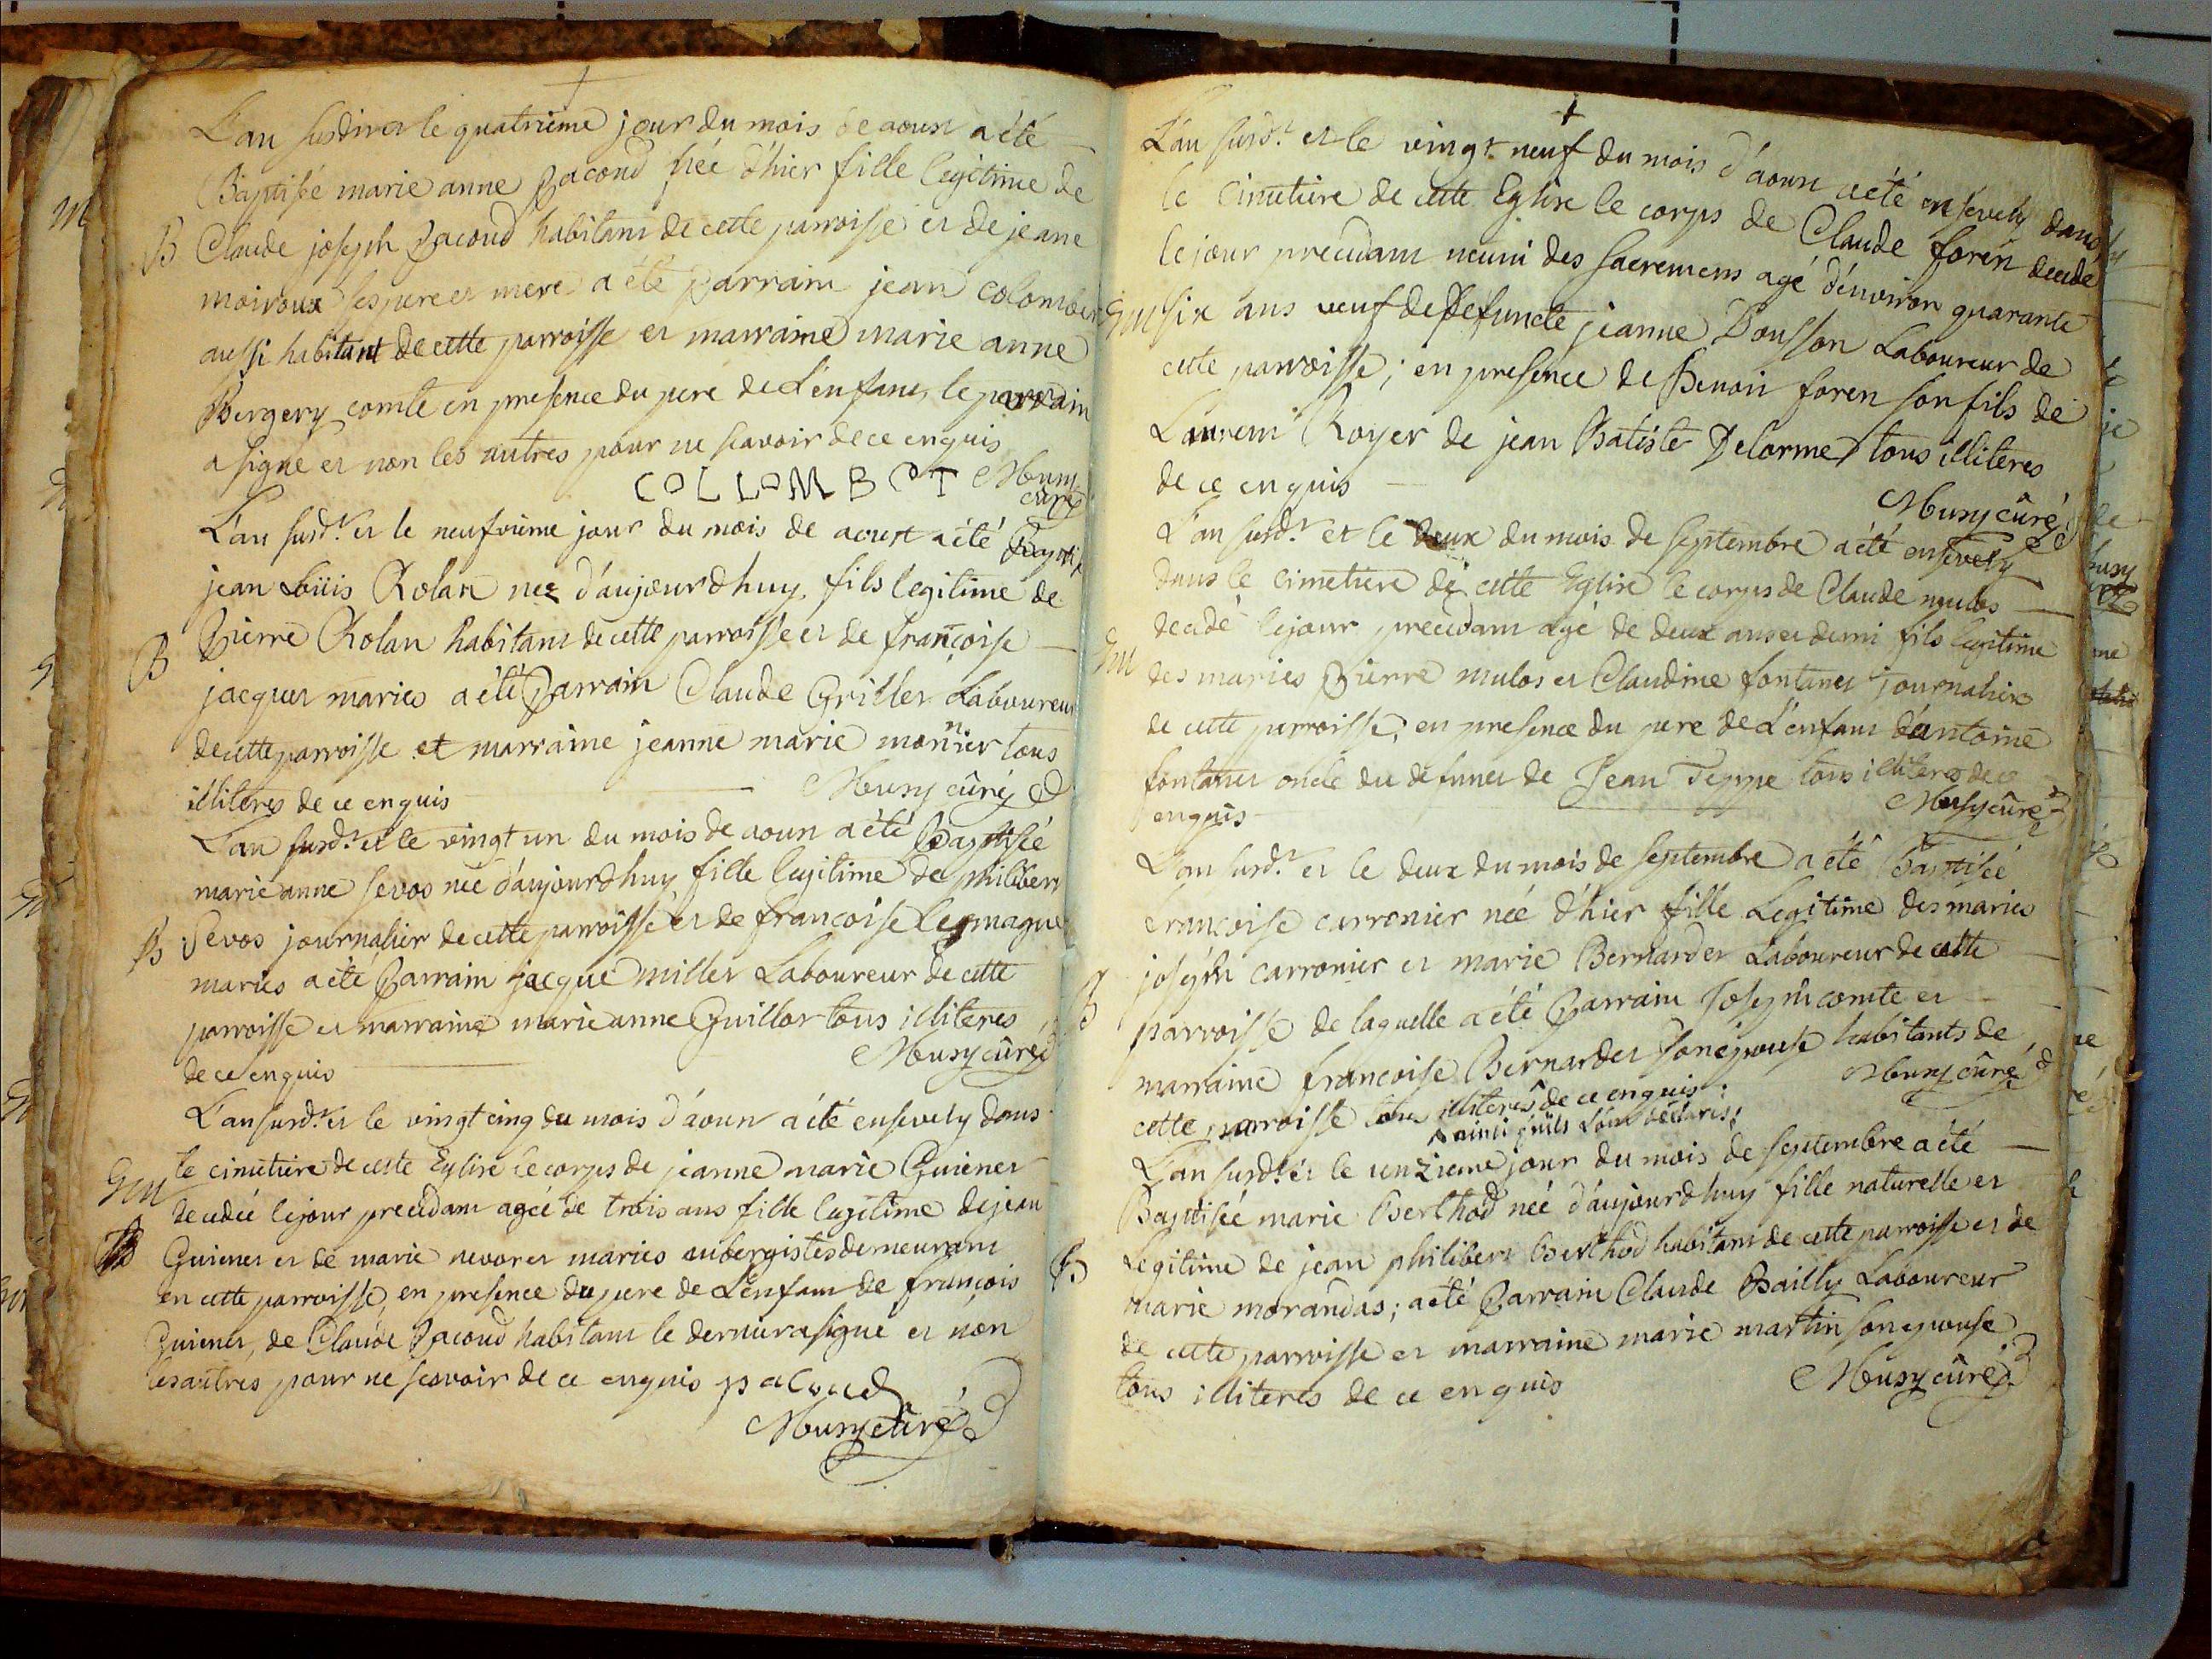 L'an susdit et le quatrieme jour du mois de aoust a été
Baptisée marie anne Pacoud née d'hier fille legitime de
B Claude joseph Pacoud habitant de cette parroisse et de jeane
moiroux ses pere et mere a été parrain jean colombet
aussi habitant de cette parroisse et marraine marie anne
Bergery comte en presence du pere de L'enfant, le parrain
a signé et non les autres pour ne scavoir de ce enquis
COLLOMBET Musy
curé
L'an susd.t et le neufvieme jour du mois de aoust a été Bapti
jean Loüis Rolan nez d'aujourdhuy fils legitime de
B Pierre Rolan habitant de cette parroisse et de françoise
jacquet mariés a été Parrain Claude Grillet Laboureur
de cette parroisse et marraine jeanne marie monnier tous
illiterés de ce enquis Musy cûré
L'an susd.t et le vingt un du mois de aoust a été Baptisée
marie anne sevos née d'aujourdhuy fille legitime de philibert
B Sevos journalier de cette parroisse et de francoise
mariés a été Parrain jacque millet Laboureur de cette
parroisse et marraine marie anne Guillot tous illiterés
de ce enquis Musy cûré
L'an susd.t et le vingt cinq du mois d'aoust a été ensevely dans
Em le cimetiere de cette Eglise le corps de jeanne marie Guienet
decedée le jour precedant agée de trois ans fille legitime de jean
Guienet et de marie nevoret mariés aubergistes demeurant
en cette parroisse, en presence du pere de L'enfant de françois
Guienet, de Claude Pacoud habitant le dernier a signé et non
les autres pour ne scavoir de ce enquis pacoud
Musy cûré
L'an susd.t et le vingt neuf du mois d'aoust a été ensevely dans
le Cimetiere de cette Eglise le corps de Claude foren decedé
le jour precedant muni des sacremens agé d'environ quarante
Em six ans veuf de Defuncte jeanne Bousson Laboureur de
cette parroisse; en presence de Benoit foren son fils de
Laurent Royer de jean Batiste Delorme tous illiterés
de ce enquis
Musy cûré
L'an susd.t et le deux du mois de septembre a été ensevely
dans le cimetiere de cette Eglise le corps de Claude mulos
Em decedé le jour precedant agé de deux ans et demi fils legitime
des mariés Pierre mulos et Claudine fontanet journalier
de cette parroisse, en presence du pere de L'enfant d'antoine
fontanet oncle du defunct de Jean Teppe tous illiterés de ce
enquis Musy cûré
L'an susd.t et le deux du mois de septembre a été Baptisée
francoise carronier née d'hier fille Legitime des mariés
B joseph carronier et marie Bernardet Laboureur de cette
parroisse de laquelle a été Parrain Joseph comte et
marraine francoise Bernardet son epouse habitants de
cette parroisse tous illiterés de ce enquis Musy cûré
ainsi qu'ils L'ont déclarés
L'an susd.t et le unzieme jour du mois de septembre a été
Baptisée marie Berthod née d'aujourdhuy fille naturelle et
B Legitime de jean philibert Berthod habitant de cette parroisse et de
marie morandas; a été Parrain Claude Bailly Laboureur
de cette parroisse et marraine marie martin son epouse
tous illiterés de ce enquis Musy cûré